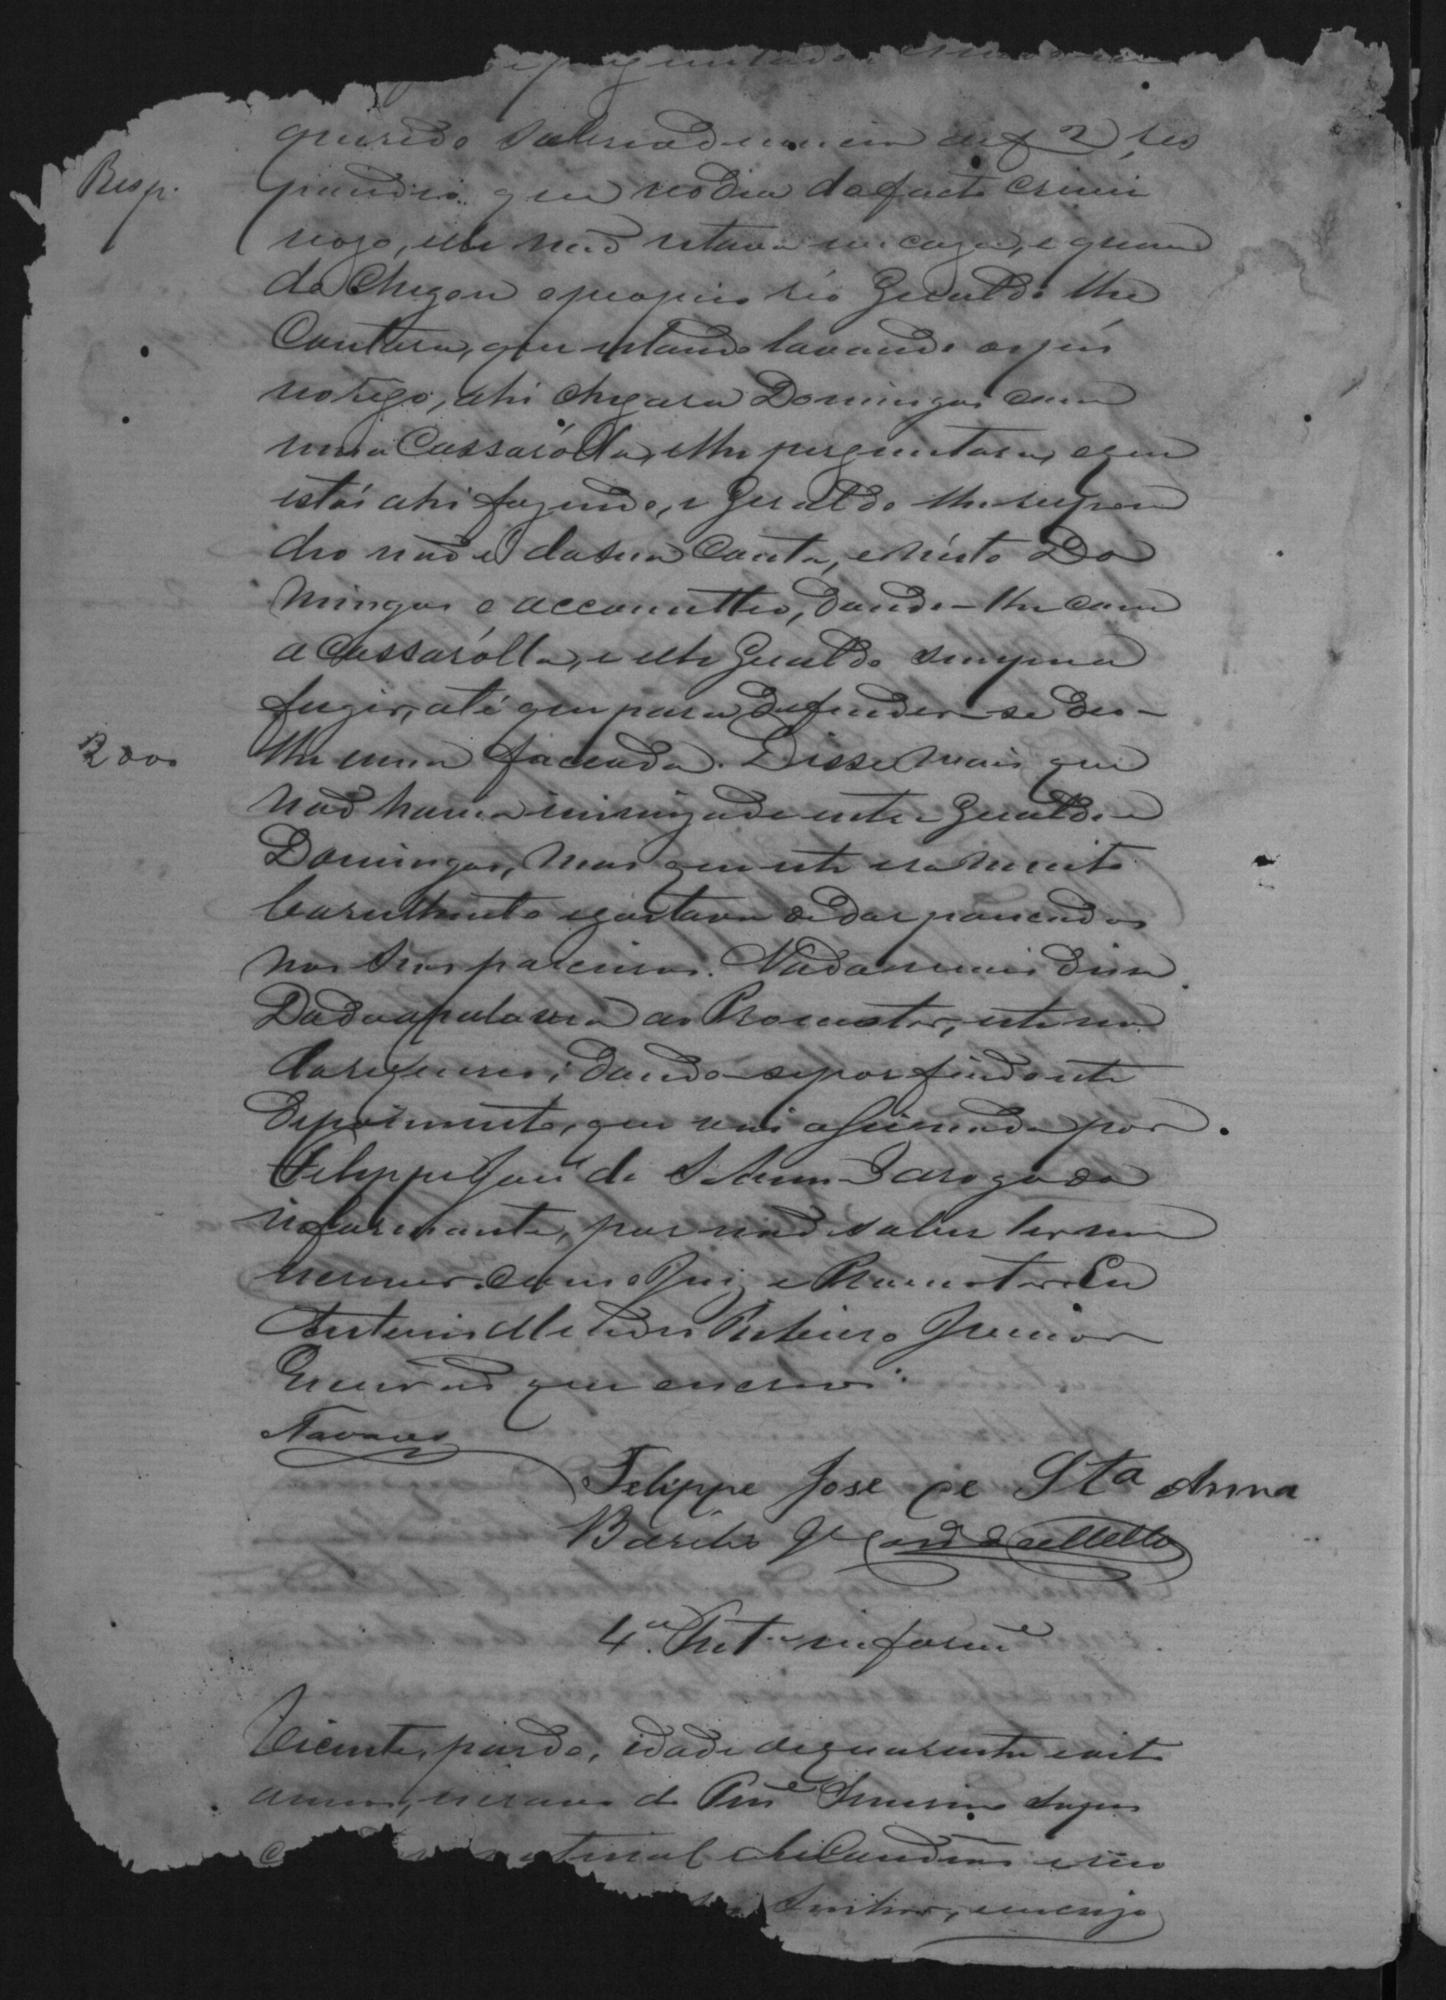 perguntado
querido sobre a denuncia de f 2, res
Resp.
pondeo que no dia do facto crimi
nozo, elle não estava em caza, e quan
do chegou o proprio réo Geraldo lhe
contara, que estando lavando os pés
no rego, ahi chegara Domingos com
uma Cassarólla, e lhe perguntara, o que
estás ahi fazendo, e Geraldo lhe respon
deo não é da sua Conta, e nisto Do
mingos o accometteo, dando-lhe com
a Cassarólla, e elle Geraldo sempre a
fugir, até que para defender-se deo-
2000
lhe uma faccada. Disse mais que
não havia inimizade entre Geraldo e
Domingos, mas que este era muito
barulhento e gostava de dar pancadas
nos seus parceiros. Nada mais disse.
Dada a palavra ao Promotor, este na
da requereo; dando-se por findo este
depoimento, que vai assignado por
Felippe José de S. Anna a rogo do
informante, por não saber ler nem
escrever, com o Juiz e Promotor. Eu
Antonio Ribeiro Junior
Escrivão que escrevi.
Tavares
Felippe José de Sta Anna
Basilio de Mello
4a. Test. informe
Vicente, pardo, idade de quarenta e oito
annos, escravo de Severino Lopes
natural e
Senhor, em cujo